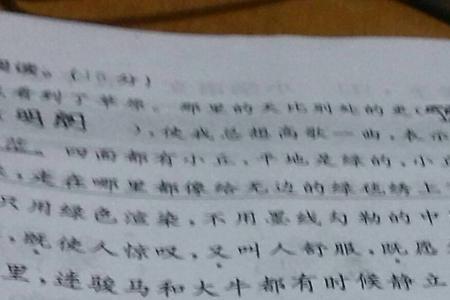 阅读。(10分)
看到了草原。那里的天比别处的更(
明朗 ),使我总想高歌一曲,表示
四面都有小丘,平地是绿的,小丘
走在哪里都像给无边的绿毯绣上
只用绿色渲染,不用墨线勾勒的中
,既使人惊叹,又叫人舒服,既愿
里,连骏马和大牛都有时候静立